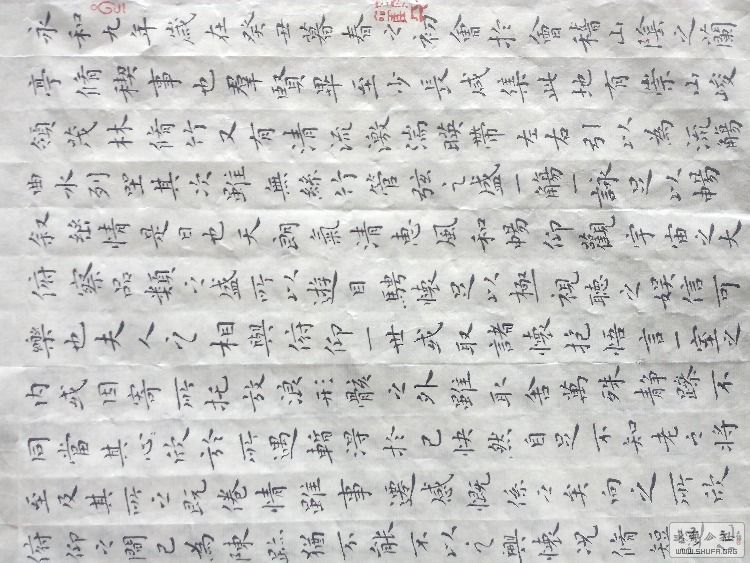 永和九年歲在癸丑暮春之初會於會稽山陰之蘭
亭脩禊事也羣賢畢至少長咸集此地有崇山峻
領茂林脩竹又有清流激湍暎帶左右引以為流觴
曲水列坐其次雖無絲竹管弦之盛一觴一詠足以暢
叙幽情是日也天朗氣清惠風和暢仰觀宇宙之大
俯察品類之盛所以遊目騁懷足以極視聽之娛信可
樂也夫人之相與俯仰一世或取諸懷抱悟言一室之
內或因寄所托放浪形骸之外雖取舍萬殊靜躁不
同當其心欣於所遇輒得於己快然自足不知老之將
至及其所之既倦情隨事遷感慨係之矣向之所欣
俯仰之間已為陳跡猶不能不以之興懷況脩短
WWW.SHUFA.ORG